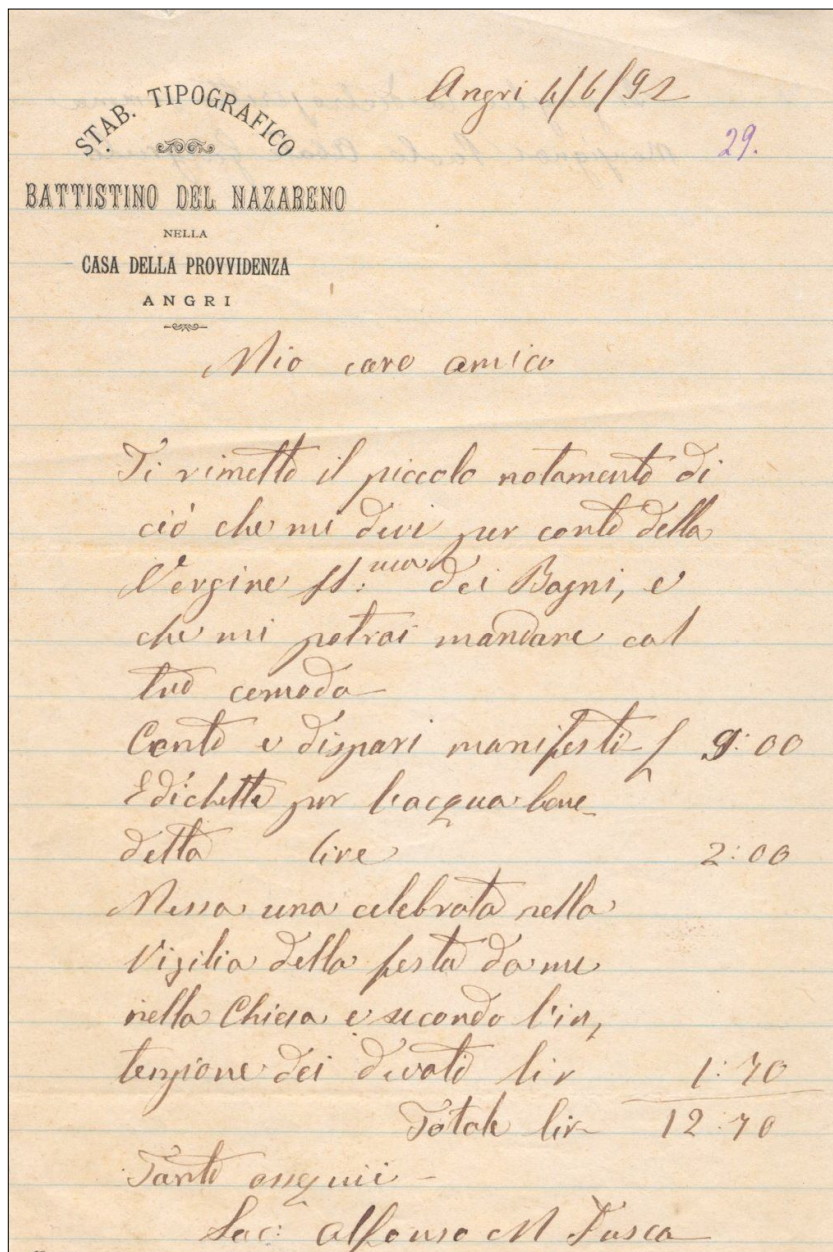 STAB. TIPOGRAFICO
BATTISTINO DEL NAZARENO
NELLA
CASA DELLA PROVVIDENZA
ANGRI
Angri 4/6/92
29.
Mio caro amico
Ti rimetto il piccolo notamento di
ciò che mi devi per conto della
Vergine SS.ma dei Bagni, e
che mi potrai mandare col
tuo comodo
Cento e dispari manifesti £ 9:00
Edichette per l'acqua bene-
detta lire 2:00
Messa una celebrata nella
Vigilia della festa da me
nella Chiesa e secondo l'in,
tenzione dei devoti lir 1:70
Totale lir 12:70
Tanti ossequii -
Sac: Alfonso M Fusco